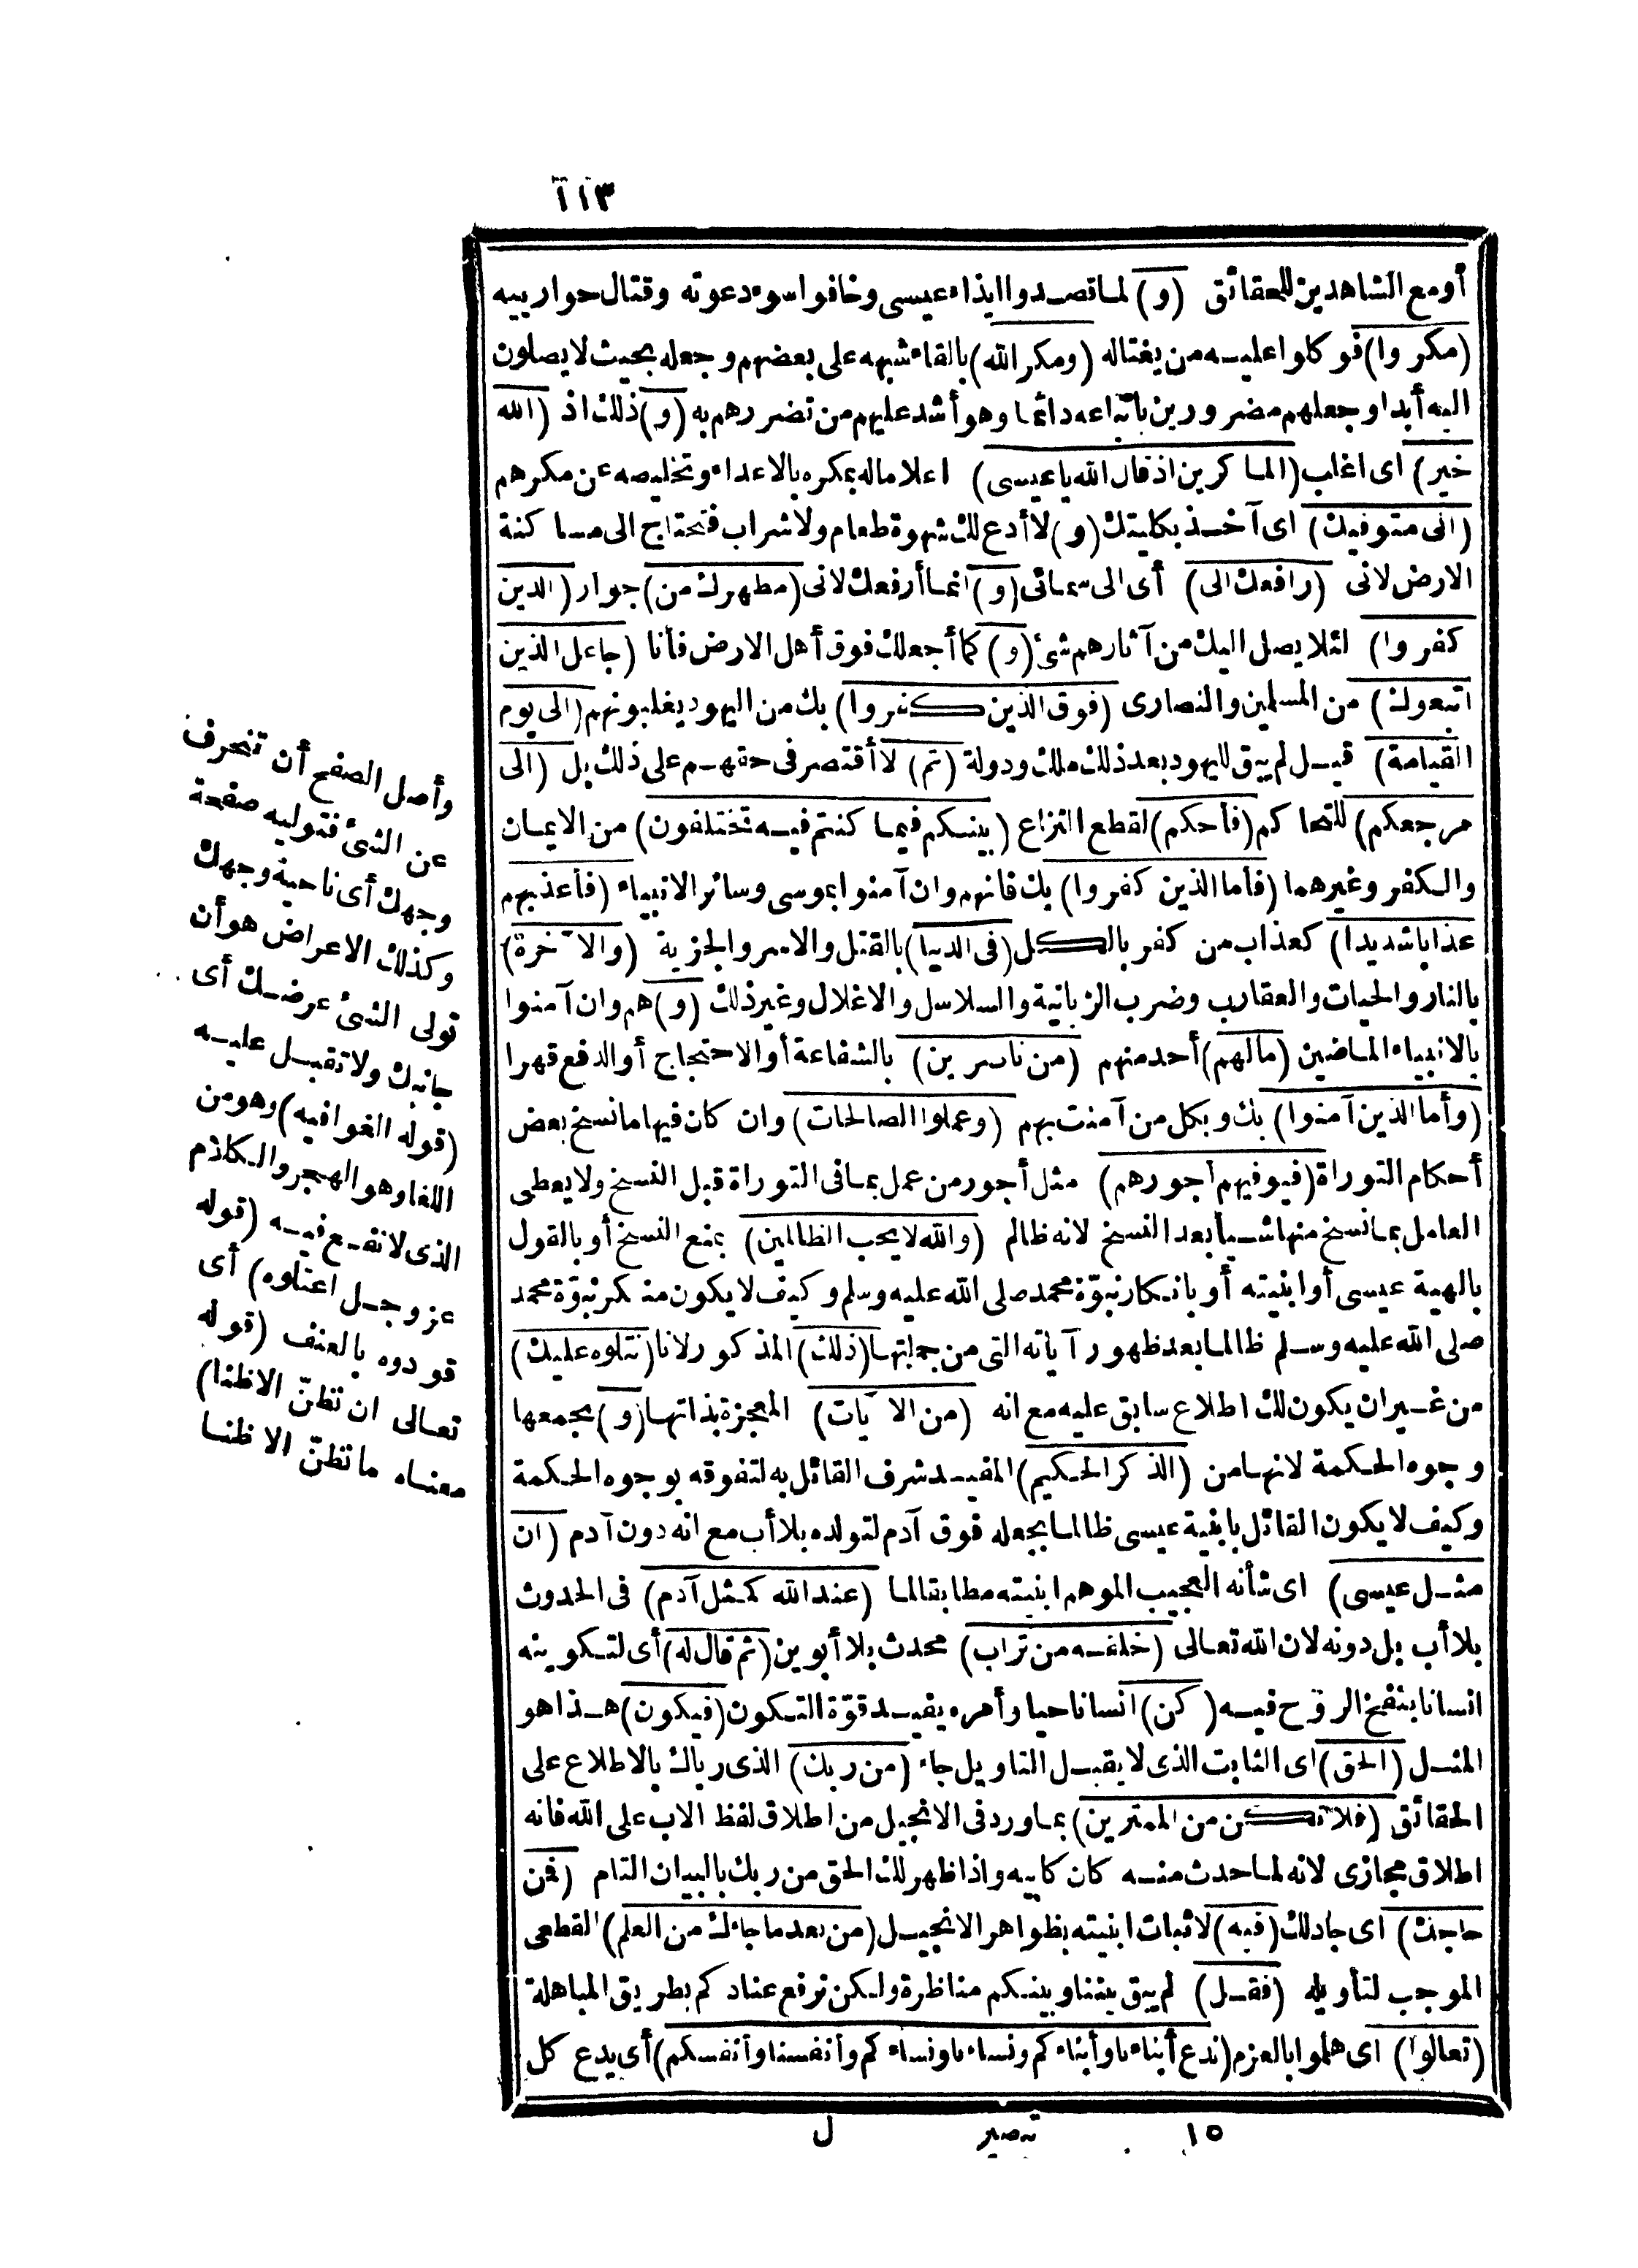 ١١٣
أو مع الشاهدين للحقائق (و) لما تصدوا ايذاء عيسى وخافوا سوء دعوته وقتال حوارييه
(مكروا) فوكلوا عليه من يغتاله (ومكر الله) بالقاء شبهه على بعضهم وجعله بحيث لا يصلون
اليه أبدا وجعلهم مضرورين باتباعه دائما وهو أشد عليهم من تضررهم به (و) ذلك اذ (الله
خير) اى اغلب (الماكرين اذ قال الله يا عيسى) اعلاما له بمكره بالاعداء وتخليصه عن مكرهم
(انى متوفيك) اى آخذ بكليتك (و) لا أدع لك شهوة طعام ولا شراب فتحتاج الى مساكنة
الارض لانى (رافعك الى) أى الى سمائى (و) انما أرفعك لانى (مطهرك من) جوار (الذين
كفروا) لئلا يصل اليك من آثارهم شئ (و) كما أجعلك فوق أهل الارض فأنا (جاعل الذين
اتبعوك) من المسلمين والنصارى (فوق الذين كفروا) بك من اليهود يغلبونهم (الى يوم
القيامة) قيل لم يبق لليهود بعد ذلك ملك ودولة (ثم) لا أقتصر فى حقهم على ذلك بل (الى
مرجعكم) للتحاكم (فأحكم) لقطع النزاع (بينكم فيما كنتم فيه تختلفون) من الايمان
والكفر وغيرهما (فأما الذين كفروا) بك فانهم وان آمنوا بموسى وسائر الانبياء (فأعذبهم
عذابا شديدا) كعذاب من كفر بالكل (فى الدنيا) بالقتل والاسر والجزية (والآخرة)
بالنار والحيات والعقارب وضرب الزبانية والسلاسل والاغلال وغير ذلك (و) هم وان آمنوا
بالانبياء الماضين (ما لهم) أحد منهم (من ناصرين) بالشفاعة أو الاحتجاج أو الدفع قهرا
(وأما الذين آمنوا) بك وبكل من آمنت بهم (وعملوا الصالحات) وان كان فيها ما نسخ بعض
أحكام التوراة (فيوفيهم أجورهم) مثل أجور من عمل بما فى التوراة قبل النسخ ولا يعطى
العامل بما نسخ منها شيأ بعد النسخ لانه ظالم (والله لا يحب الظالمين) بمنع النسخ أو بالقول
بالهية عيسى أو ابنيته أو بانكار نبوّة محمد صلى الله عليه وسلم وكيف لا يكون منكر نبوّة محمد
صلى الله عليه وسلم ظالما بعد ظهور آياته التى من جملتها (ذلك) المذكور لانا (نتلوه عليك)
من غير ان يكون لك اطلاع سابق عليه مع انه (من الآيات) المعجزة بذاتها (و) بجمعها
وجوه الحكمة لانها من (الذكر الحكيم) المفيد شرف القائل به لتفوقه بوجوه الحكمة
وكيف لا يكون القائل بابنية عيسى ظالما بجعله فوق آدم لتولده بلا أب مع انه دون آدم (ان
مثل عيسى) اى شأنه العجيب الموهم ابنيته مطابقا لما (عند الله كمثل آدم) فى الحدوث
بلا أب بل دونه لان الله تعالى (خلقه من تراب) محدث بلا أبوين (ثم قال له) أى لتكوينه
انسانا بنفخ الروح فيه (كن) انسانا حيا وأمره يفيد قوّة التكون (فيكون) هذا هو
المثل (الحق) اى الثابت الذى لا يقبل التاويل جاء (من ربك) الذى رباك بالاطلاع على
الحقائق (فلا تكن من الممترين) بما ورد فى الانجيل من اطلاق لفظ الاب على الله فانه
اطلاق مجازى لانه لما حدث منه كان كابيه واذا ظهر لك الحق من ربك بالبيان التام (فمن
حاجك) اى جادلك (فيه) لاثبات ابنيته بظواهر الانجيل (من بعد ما جاءك من العلم) القطعى
الموجب لتأويله (فقل) لم يبق بيننا وبينكم مناظرة ولكن نرفع عنادكم بطريق المباهلة
(تعالوا) اى هلموا بالعزم (ندع أبناءنا وأبناءكم ونساءنا ونساءكم وأنفسنا وأنفسكم) أى يدع كل
وأصل الصفح أن تنحرف
عن الشئ فتوليه صفحة
وجهك أى ناحية وجهك
وكذلك الاعراض هو أن
تولى الشئ عرضك أى
جانبك ولا تقبل عليه
(قوله الغوا فيه) وهو من
اللغا وهو الهجر والكلام
الذى لا نفع فيه (قوله
عز وجل اعتلوه) أى
قودوه بالعنف (قوله
تعالى ان نظنّ الا ظنا)
معناه ما نظنّ الا ظنا
١٥ تبصير ل